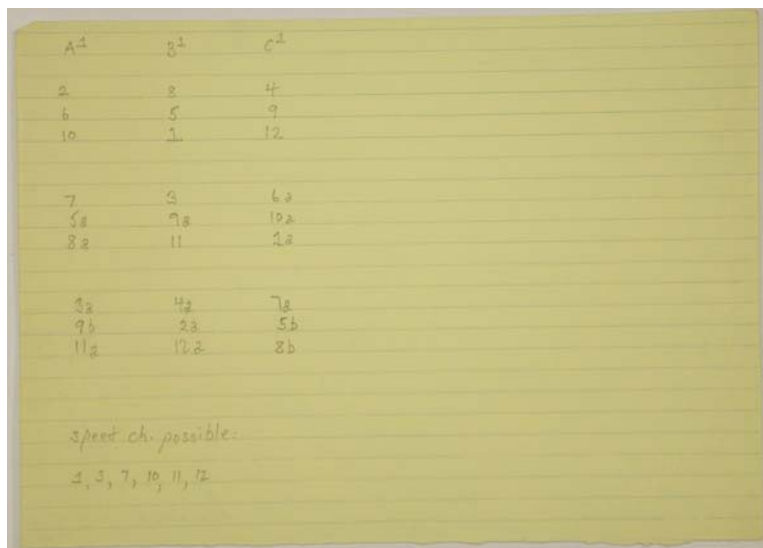 A1 B1 C1
2 8 4
6 5 9
10 1 12
7 3 6a
5a 9a 10a
8a 11 1a
3a 4a 7a
9b 2a 5b
11a 12a 8b
speed ch. possible:
1, 3, 7, 10, 11, 12